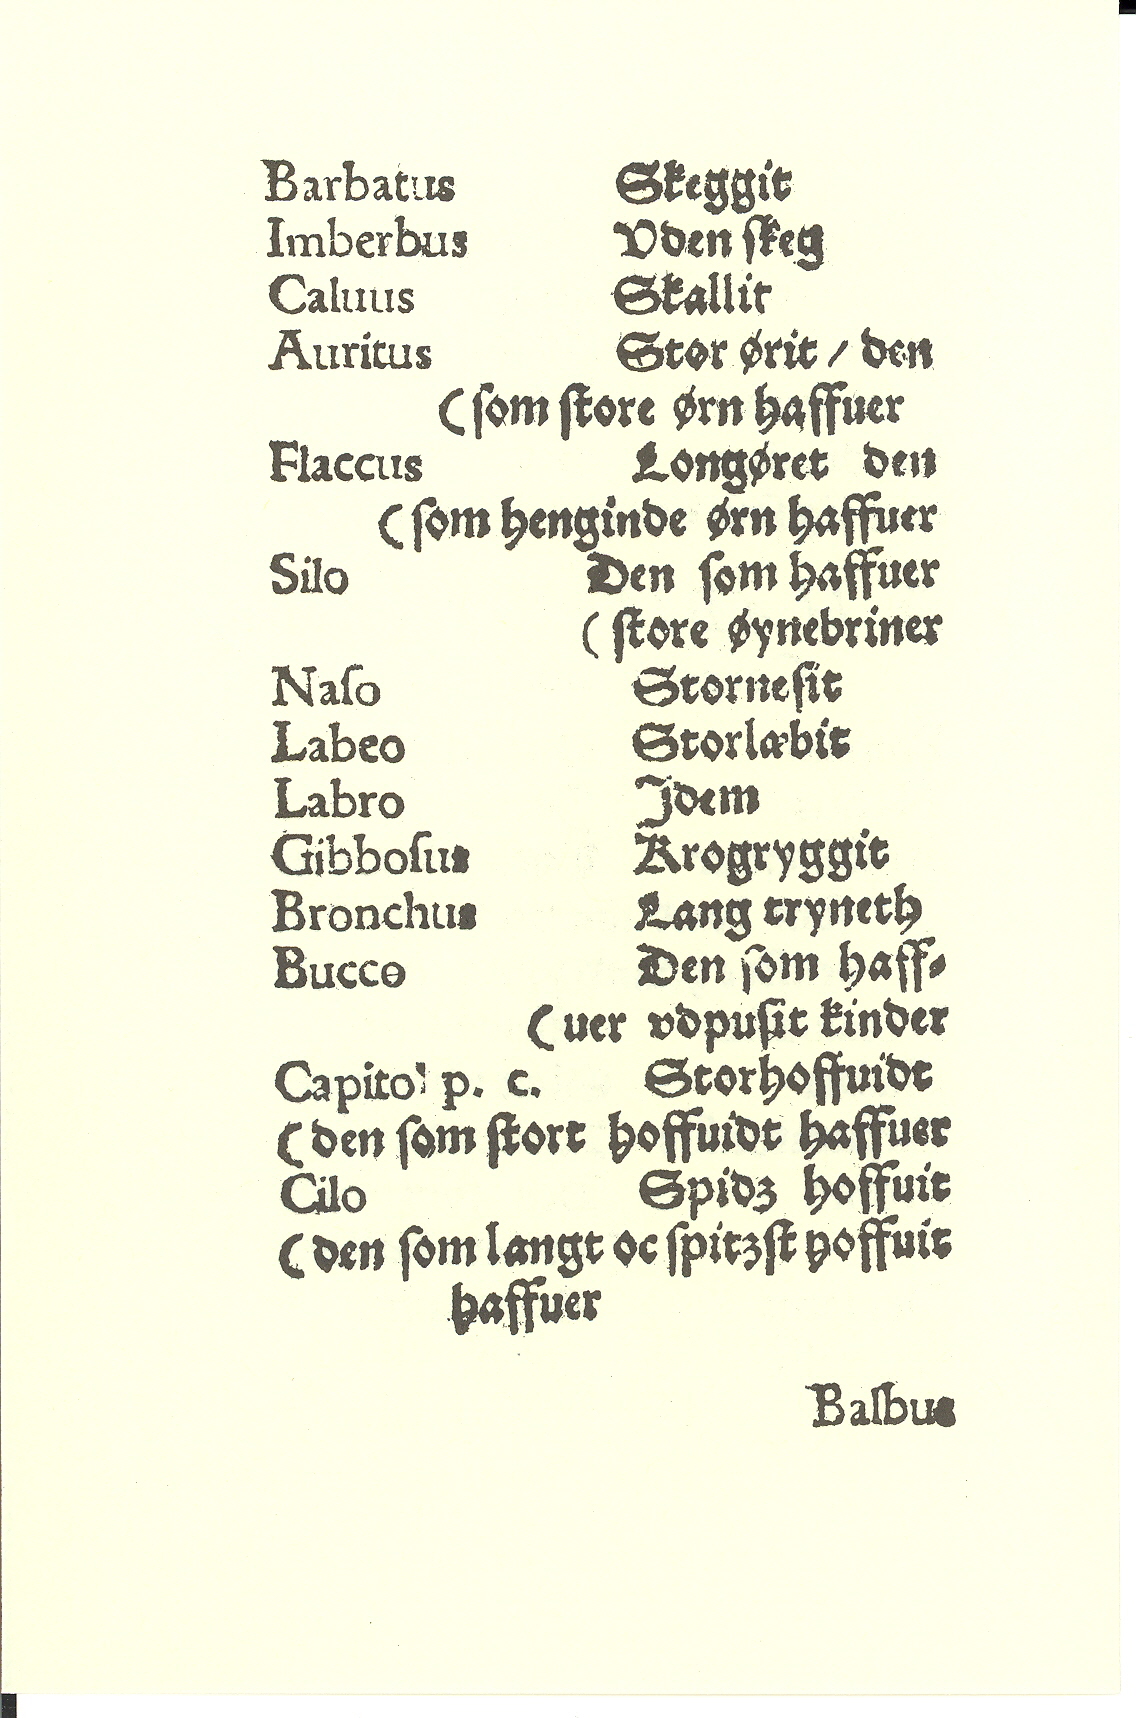 Barbatus Skeggit
Imberbus Vden ſkeg
Caluus Skallit
Auritus Stor ørit / den
(ſom ſtore ørn haffuer
Flaccus Longøret den
(ſom henginde ørn haffuer
Silo Den ſom haffuer
(ſtore øynebriner
Naſo Storneſit
Labeo Storlæbit
Labro Jdem
Gibboſus Krogryggit
Bronchus Lang tryneth
Bucco Den ſom haff⸗
(uer vdpuſit kinder
Capito! p. c. Storhoffuidt
(den ſom ſtort hoffuidt haffuer
Cilo Spidz hoffuit
(den ſom langt oc ſpitzſt hoffuit
haffuer
Balbus